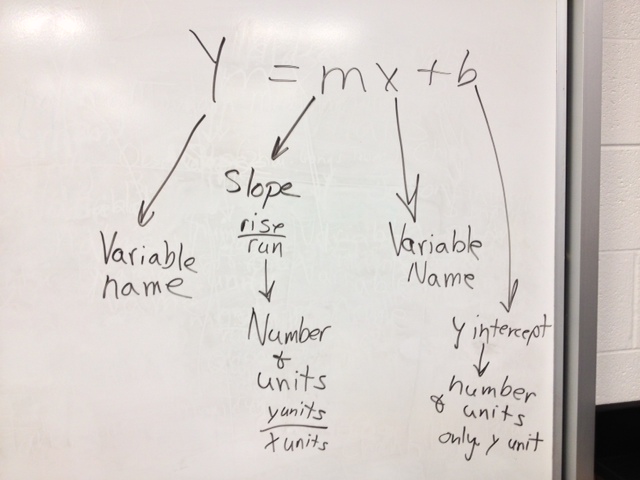 y = mx + b
Variable
name
Slope
rise
run
Number
&
units
y units
x units
Variable
Name
y intercept
number
& units
only y unit